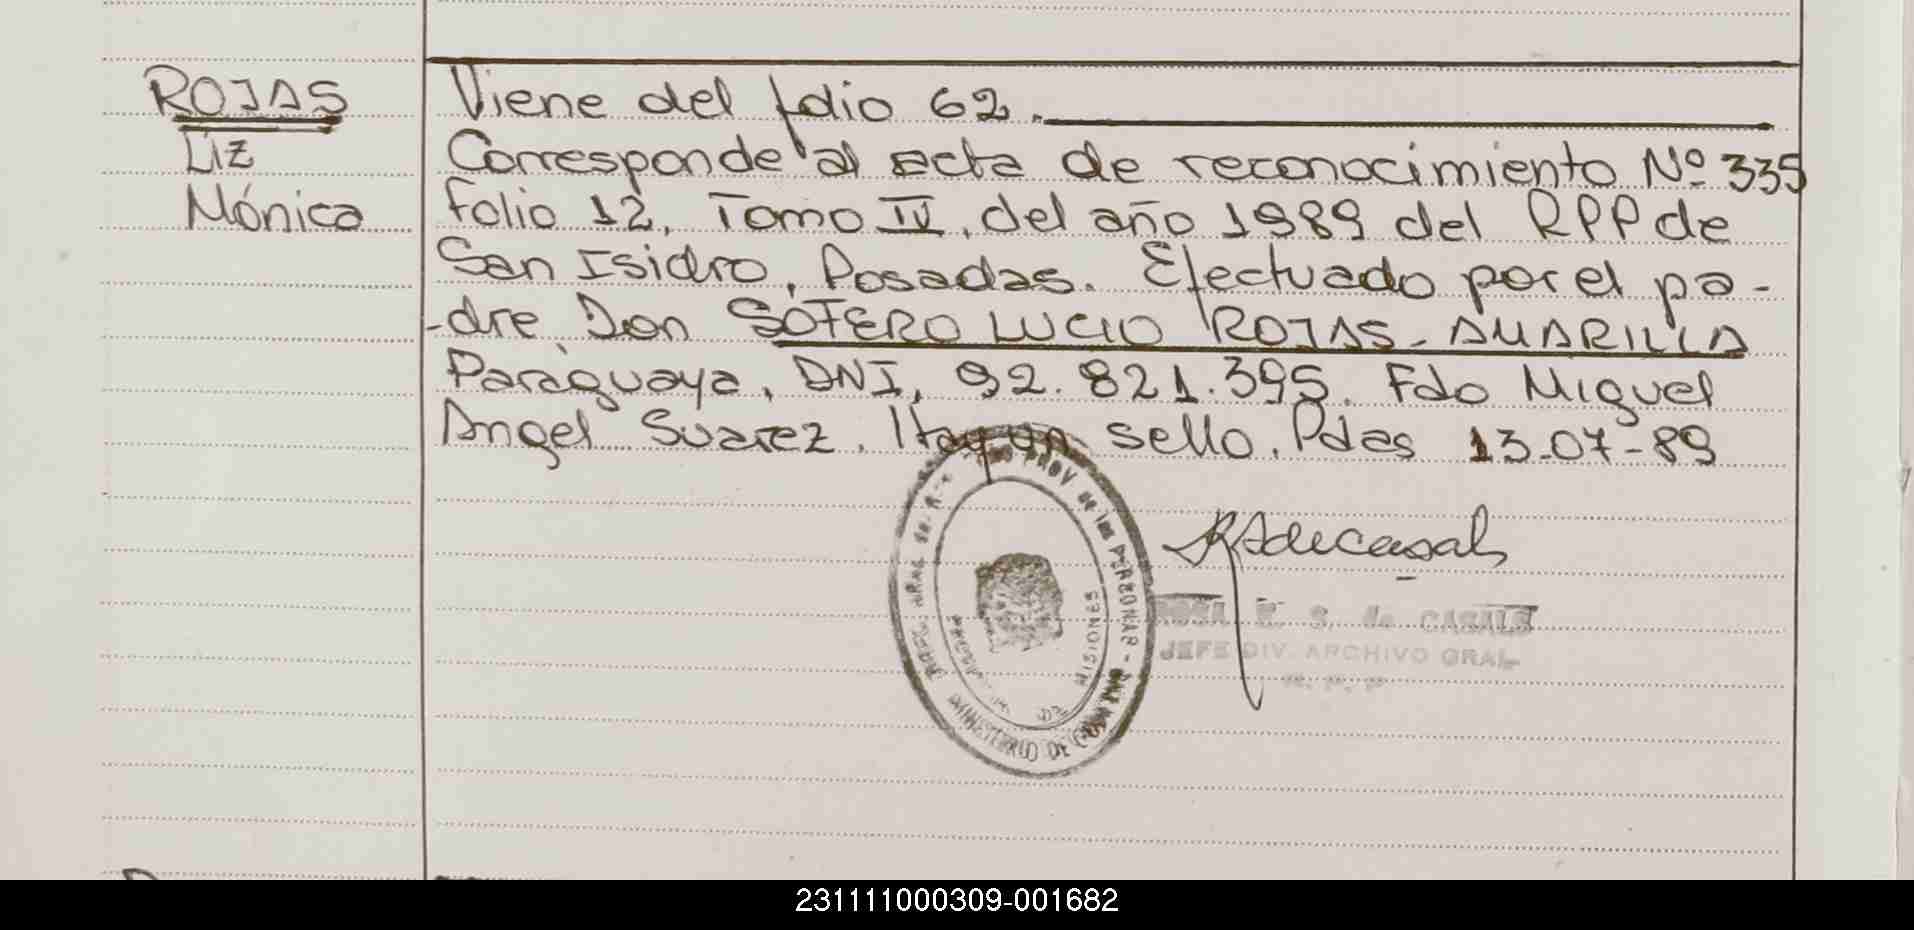 ROJAS
Liz
Mónica
Viene del folio 62.
Corresponde al acta de reconocimiento Nº 335
Folio 12, Tomo IV, del año 1989 del RPP de
San Isidro, Posadas. Efectuado por el pa-
-dre, Don SOTERO LUCIO ROJAS - AMARILLA
Paraguaya, DNI, 92.821.395. Fdo Miguel
Angel Suarez. Hay un sello. Pdas 13-07-89
PROV de las PERSONAS
MISIONES
MINISTERIO DE
de CASALS
JEFE DIV. ARCHIVO GRAL
R. P. P
231111000309-001682